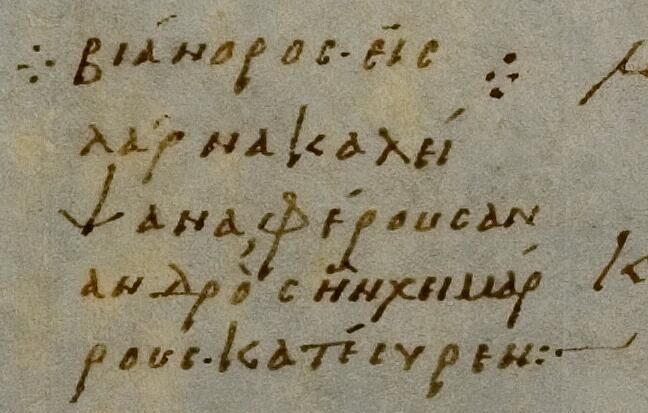 ⁘ βιάνορος· εἰς ⁘
λάρνακα λεί
ψανα φέρουσαν
ανδρὸς ἣν χειμάρ
ρους· κατέσυρεν:-